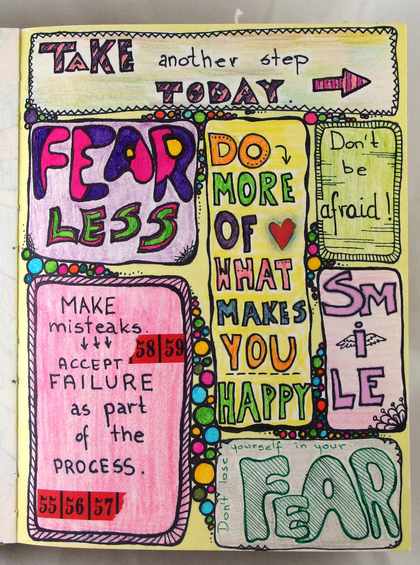 TAKE another step
TODAY.
FEAR
LESS
DO
MORE
OF
WHAT
MAKES
YOU
HAPPY
Don't
be
afraid!
MAKE
misteaks.
58 59
ACCEPT
FAILURE
as part
of the
PROCESS.
55 56 57
SMiLE
Don't lose yourself in your
FEAR